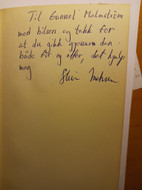 Til Gunnel Malmström
med hilsen og takk for
at du gikk gjennom den
både før og efter, det hjalp
meg